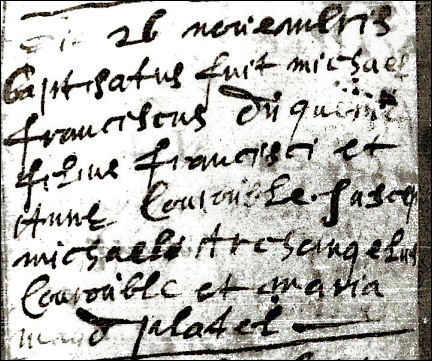 Die 26 novembris
baptisatus fuit michael
franciscus duquéne
filius francisci et
Anne Couroüble susce
michaele Archangelus
Couroüble et maria
mag^d platel